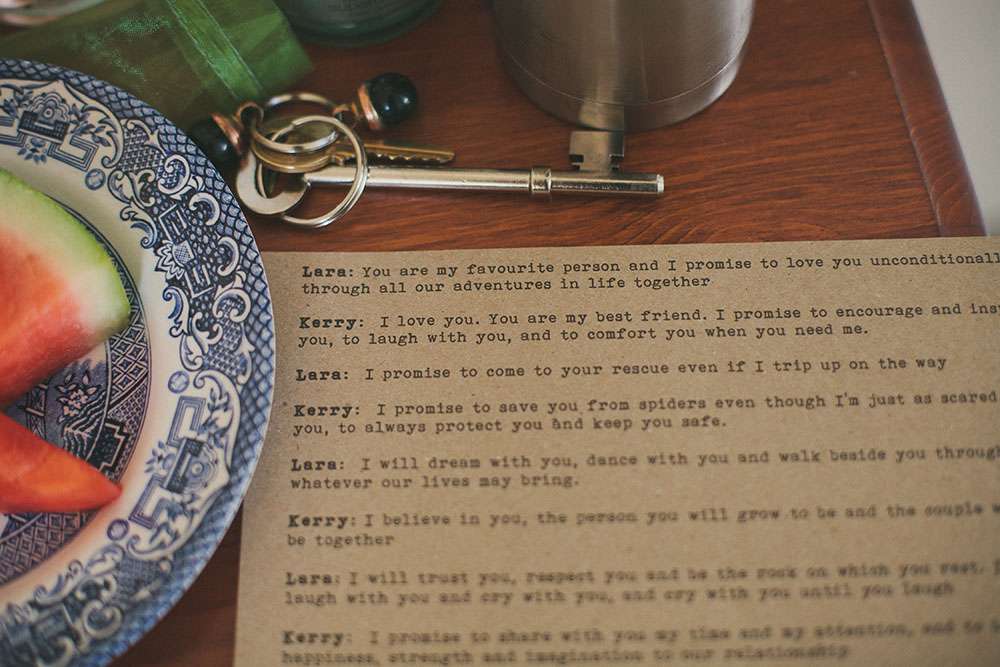 Lara: You are my favourite person and I promise to love you unconditionall
through all our adventures in life together
Kerry: I love you. You are my best friend. I promise to encourage and ins
you, to laugh with you, and to comfort you when you need me.
Lara: I promise to come to your rescue even if I trip up on the way
Kerry: I promise to save you from spiders even though I'm just as scared
you, to always protect you and keep you safe.
Lara: I will dream with you, dance with you and walk beside you throug
whatever our lives may bring.
Kerry: I believe in you, the person you will grow to be and the couple w
be together
Lara: I will trust you, respect you and be the rock on which you rest.
laugh with you and cry with you, and cry with you until you laugh
Kerry: I promise to share with you my time and my attention, and to
happiness, strength and imagination to our relationship